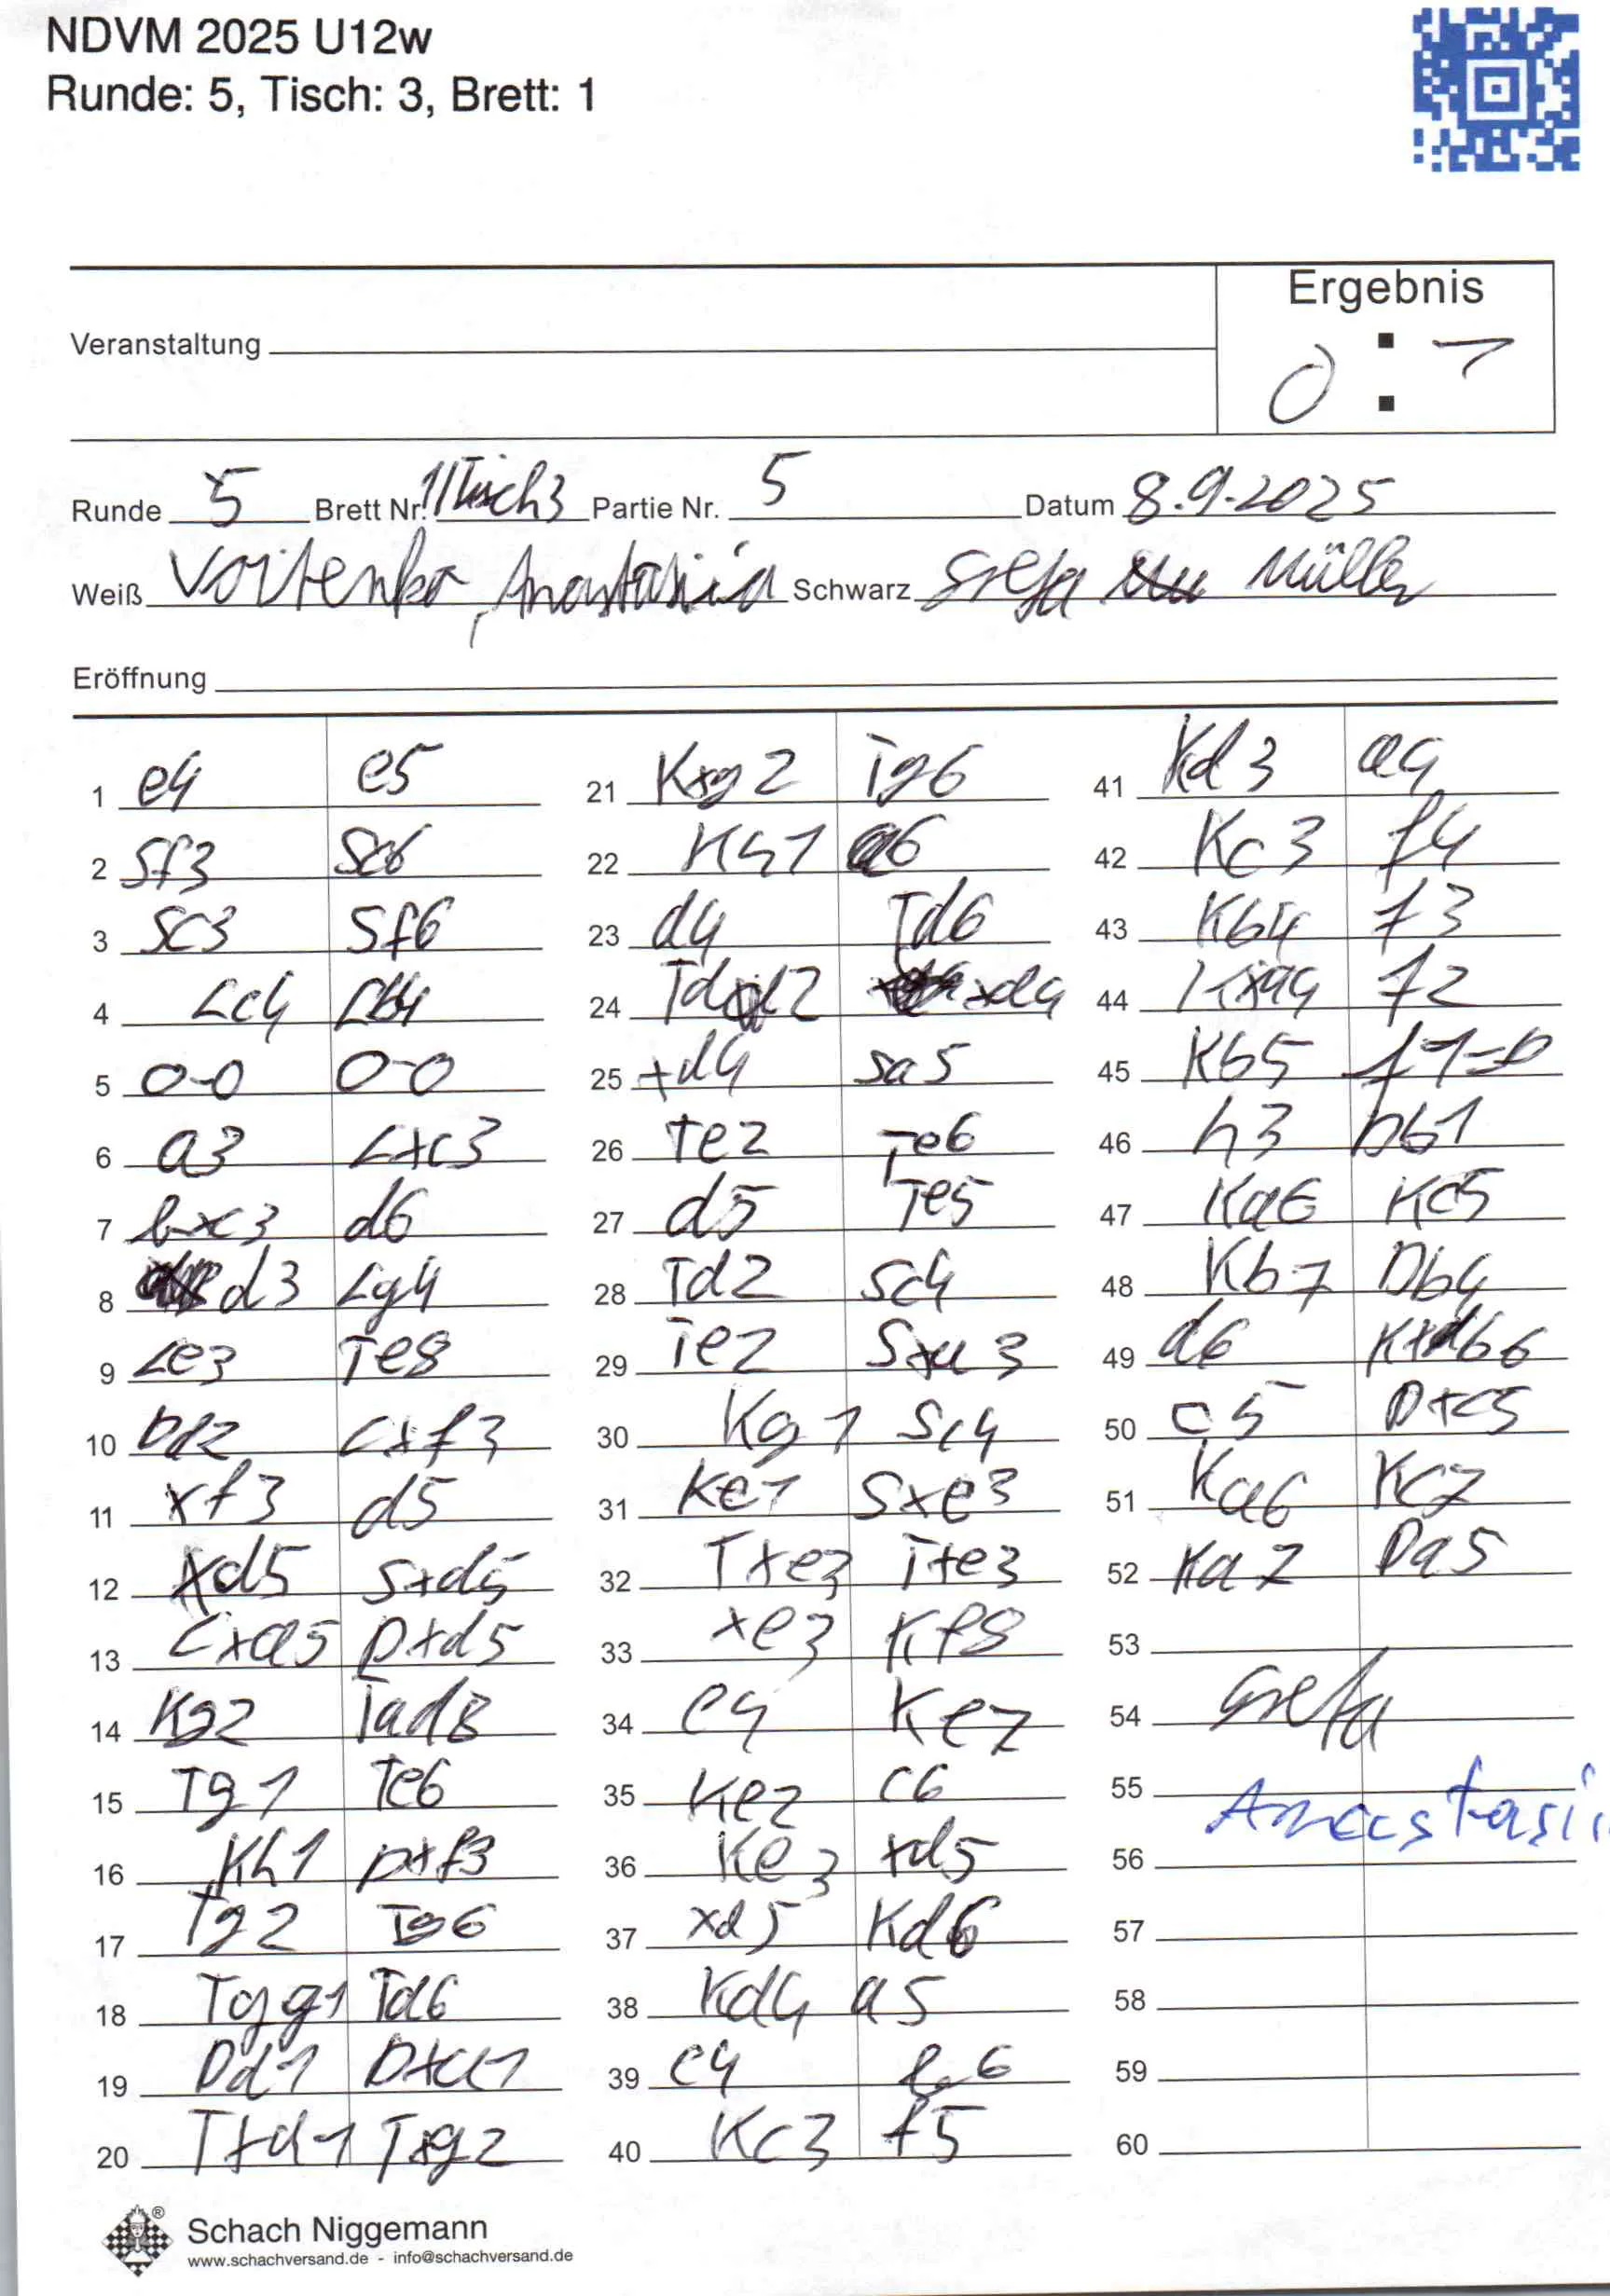 NDVM 2025 U12w
Runde: 5, Tisch: 3, Brett: 1
Ergebnis
Veranstaltung
0 : 1
Runde 5 Brett Nr. 1/Tisch3 Partie Nr. 5 Datum 8.9.2025
Weiß Voitenko, Anastasiia Schwarz Greta Müller
Eröffnung
1 e4 e5 21 Kxg2 Tg6 41 Kd3 a4
2 Sf3 Sc6 22 Kh1 a6 42 Kc3 f4
3 Sc3 Sf6 23 d4 Td6 43 Kb4 f3
4 Lc4 Lb4 24 Td2 xd4 44 Kxa4 f2
5 0-0 0-0 25 xd4 Sa5 45 Kb5 f1=D
6 a3 Lxc3 26 Te2 Te6 46 h3 Db1
7 bxc3 d6 27 d5 Te5 47 Ka6 Kc5
8 d3 Lg4 28 Td2 Sc4 48 Kb7 Db4
9 Le3 Te8 29 Te2 Sxa3 49 d6 Kxd6
10 Dd2 Lxf3 30 Kg1 Sc4 50 c5 Dxc5
11 xf3 d5 31 Ke1 Sxe3 51 Ka6 Kc7
12 xd5 Sxd5 32 Txe3 Txe3 52 Ka7 Da5
13 Lxd5 Dxd5 33 xe3 Kf8 53
14 Kg2 Tad8 34 e4 Ke7 54 Greta
15 Tg1 Te6 35 Ke2 c6 55 Anastasii
16 Kh1 Dxf3 36 Ke3 xd5 56
17 Tg2 Tg6 37 xd5 Kd6 57
18 Tgg1 Td6 38 Kd4 a5 58
19 Dd1 Dxd1 39 c4 b6 59
20 Txd1 Txg2 40 Kc3 f5 60
®
Schach Niggemann
www.schachversand.de - info@schachversand.de